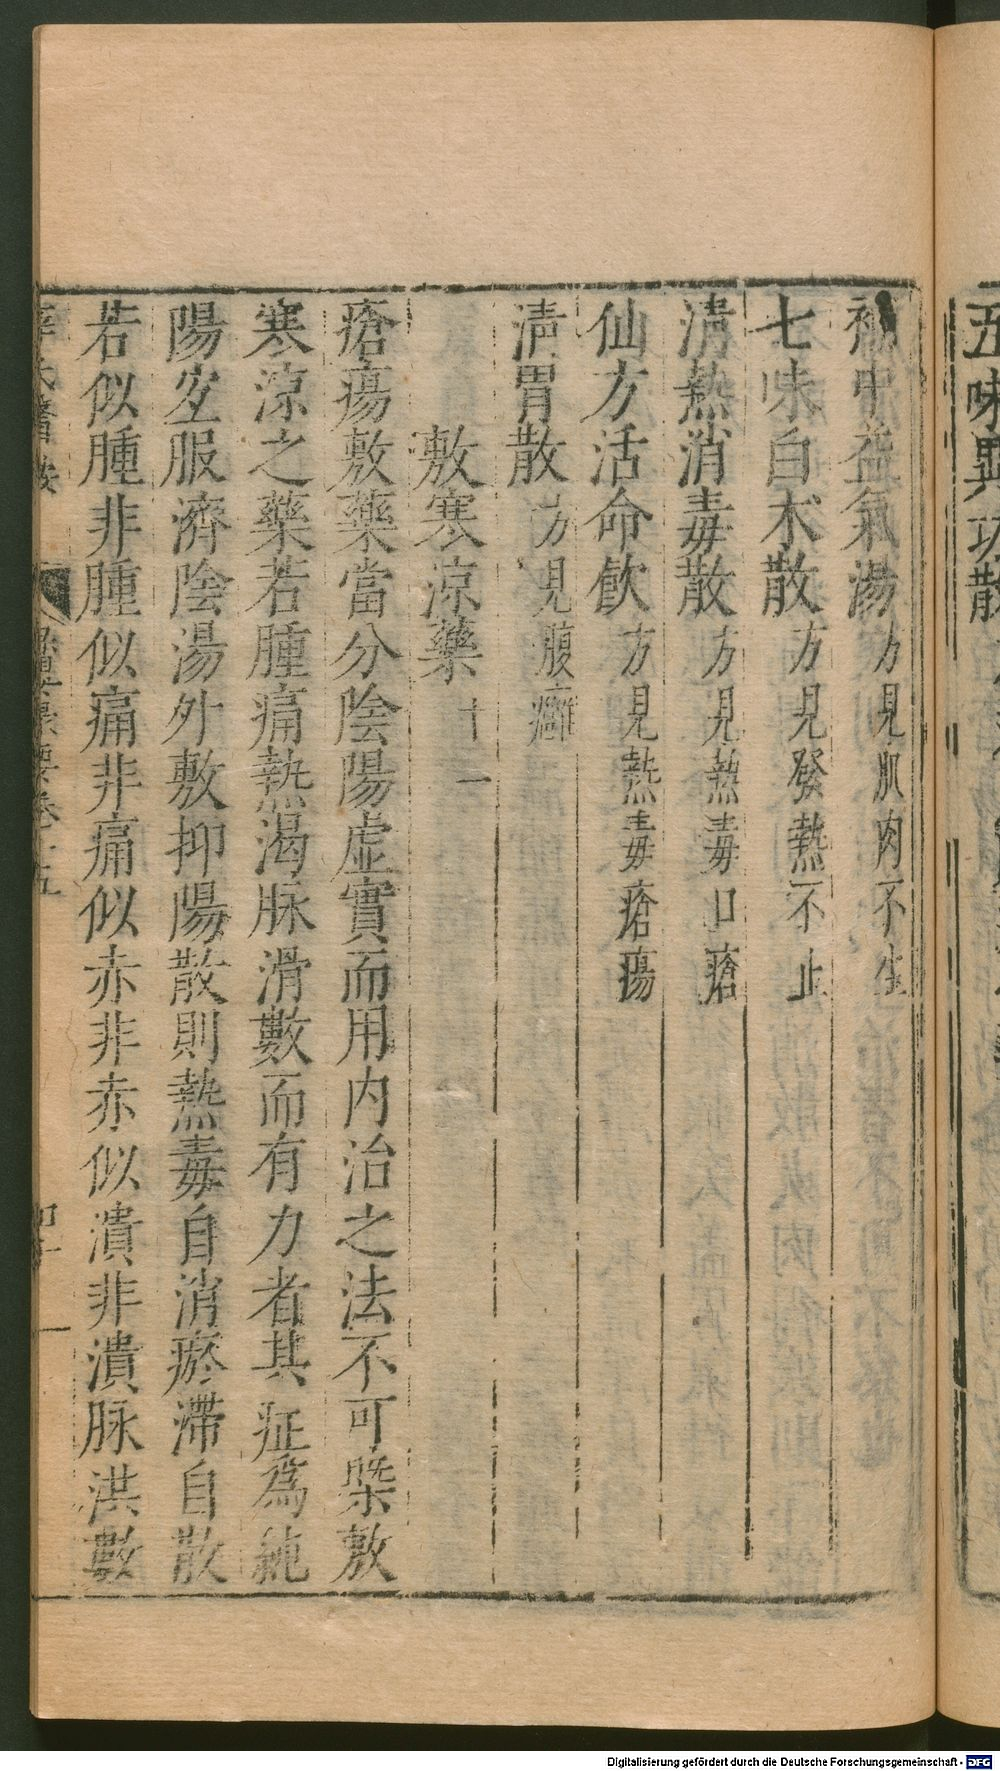 五味異功散
補中益氣湯 方見肌肉不生
七味白朮散 方見發熱不止
清熱消毒散 方見熱毒口瘡
仙方活命飲 方見熱毒瘡瘍
清胃散 方見腹癰
敷寒涼藥 十一
瘡瘍敷藥當分陰陽虛實而用内治之法不可槩敷
寒涼之藥若腫痛熱渴脉滑數而有力者其症爲純
陽宜服濟陰湯外敷抑陽散則熱毒自消瘀滯自散
若似腫非腫似痛非痛似赤非赤似潰非潰脉洪數
薛氏醫按 卷十五
Digitalisierung gefördert durch die Deutsche Forschungsgemeinschaft - DFG